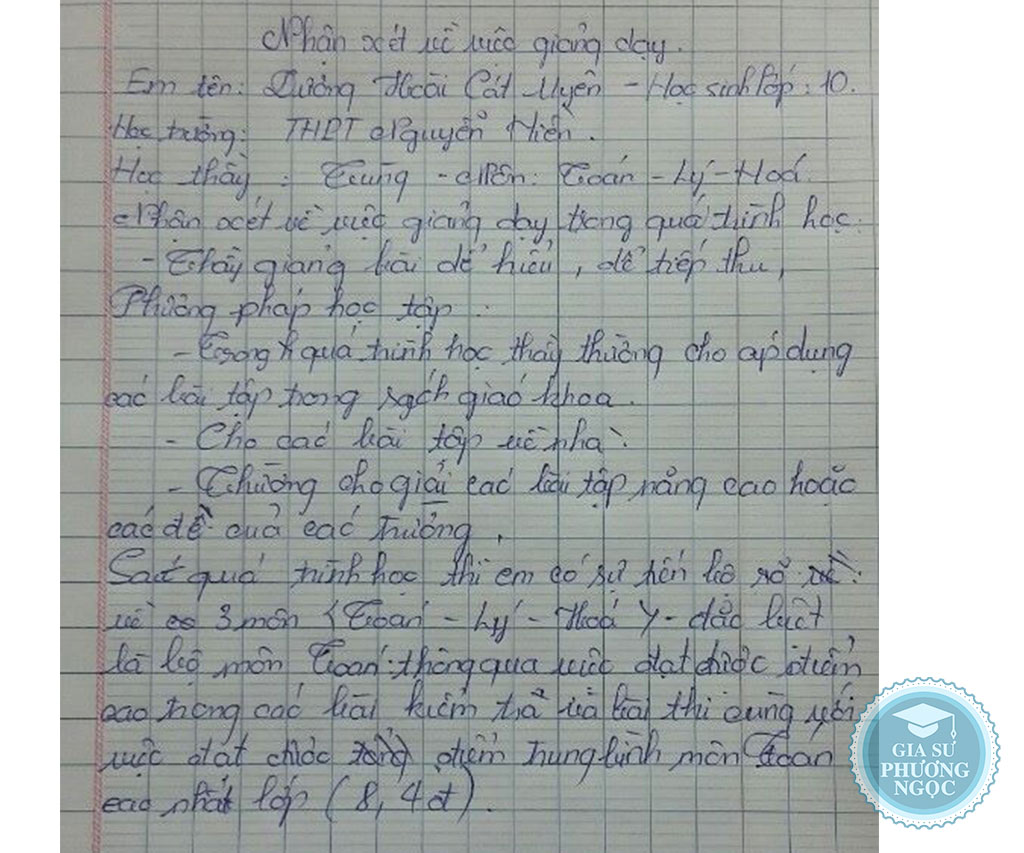 Nhận xét về việc giảng dạy.
Em tên: Dương Hoài Cát Uyên - Học sinh lớp: 10.
Học trường: THPT Nguyễn Hiền.
Học thầy: Trung - Môn: Toán - Lý - Hoá.
Nhận xét về việc giảng dạy trong quá trình học.
- Thầy giảng bài dể hiểu, dể tiếp thu,
Phương pháp học tập :
- Trong quá trình học thầy thường cho áp dụng
các bài tập trong sách giáo khoa.
- Cho các bài tập về nhà.
- Thường cho giải các bài tập nâng cao hoặc
các đề của các trường.
Sau quá trình học thì em có sự tiến bộ rỏ
về 3 môn (Toán - Lý - Hoá) - đặc biệt
là bộ môn Toán: thông qua việc đạt được điểm
cao trong các bài kiểm tra và bài thi cùng với
việc đạt được điểm trung bình môn Toán
cao nhất lớp (8,4đ).
GIA SƯ
PHƯƠNG
NGỌC